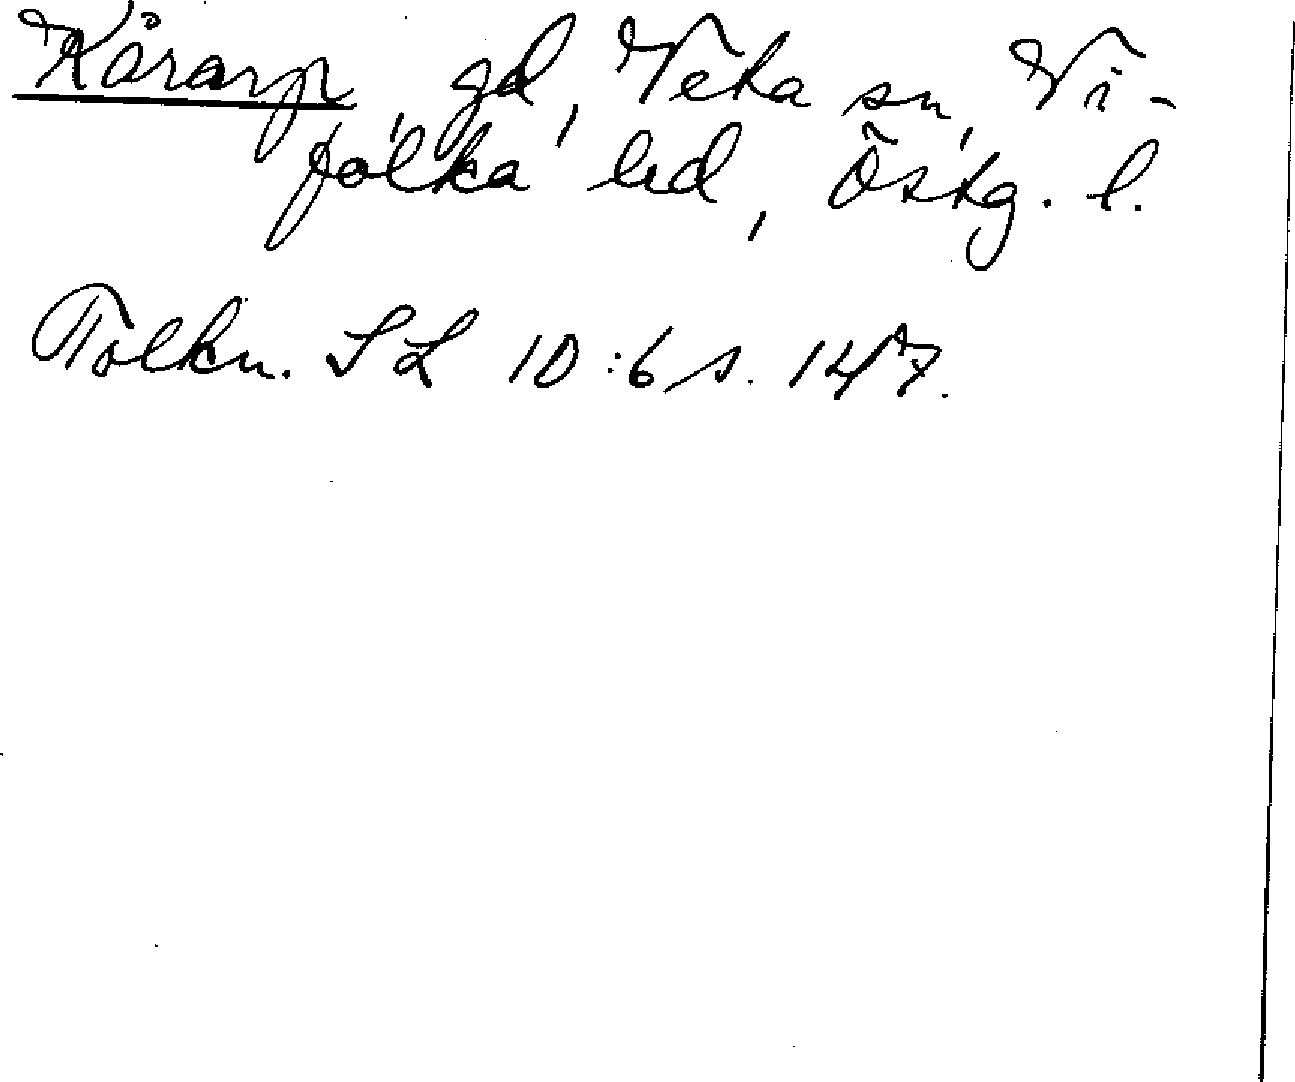 Kårarp, gd, Veta sn, Vi-
folka hd, Östg. l.
Tolkn. SL 10:6 s. 147.